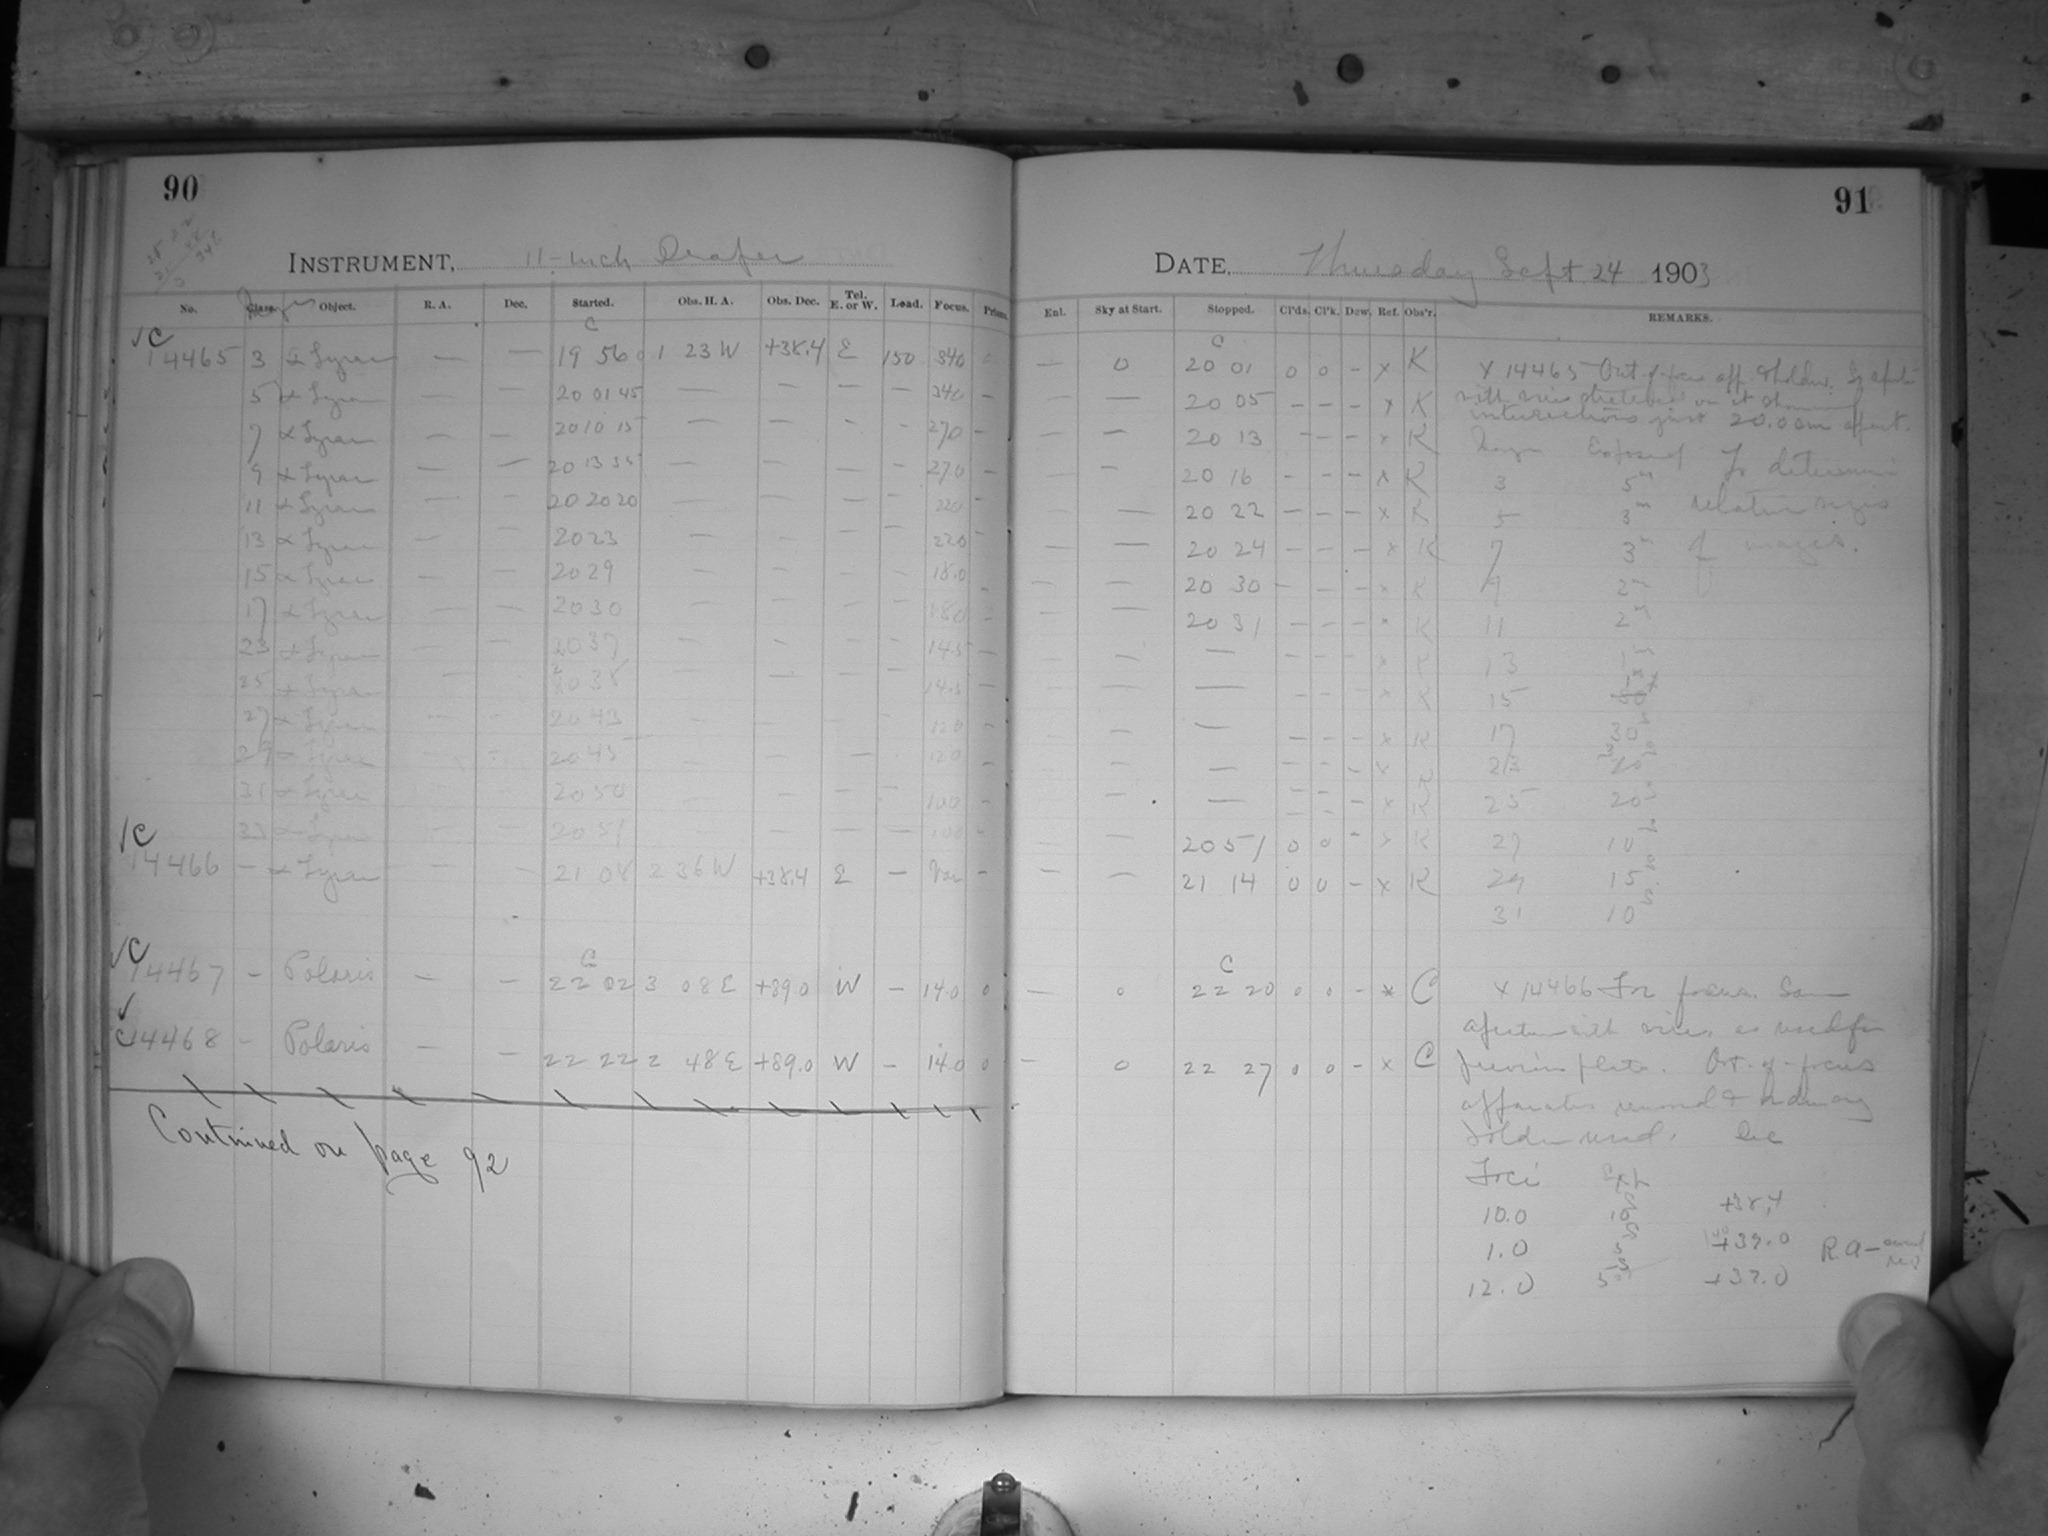 90
INSTRUMENT, 11-inch Draper
No. Class. Object. R. A. Dec. Started. Obs. H. A. Obs. Dec. Tel. E. or W. Load. Focus. Prism.
C
√C
14465 3 α Lyrae — — 19 56 0 1 23 W +38.4 E 150 340
5 α Lyrae — — 20 01 45 — — - - 340 -
7 α Lyrae — — 20 10 15 — — - - 270 -
9 α Lyrae — — 20 13 35 — — - - 270 -
11 α Lyrae — — 20 20 20 — — - - 220 -
13 α Lyrae — — 20 23 — — - - 220 -
15 α Lyrae — — 20 29 — — - - 18.0 -
17 α Lyrae — — 20 30 — — - - 180 -
23 α Lyrae — — 20 37 — — - - 14.5 -
25 α Lyrae — — 20 38 — — - - 14.5 -
27 α Lyrae — — 20 43 — — - - 120 -
29 α Lyrae — — 20 45 — — - - 120 -
31 α Lyrae — — 20 50 — — - - 100 -
33 α Lyrae — — 20 51 — — - - 100 -
√C
14466 - α Lyrae — — 21 08 2 36 W +38.4 E - Var -
√C
C
14467 - Polaris — — 22 02 3 08 E +89.0 W - 14.0 0
√
C 14468 - Polaris — — 22 22 2 48 E +89.0 W - 14.0 0
Continued on page 92
91
DATE, Thursday Sept 24 1903
Enl. Sky at Start. Stopped. Cl'ds. Cl'k. Dew. Ref. Obs'r. REMARKS.
C
— 0 20 01 0 0 - x K
— — 20 05 - - - x K
— — 20 13 - - - x K
— — 20 16 - - - x K
— — 20 22 - - - x K
— — 20 24 - - - x K
— — 20 30 - - - x K
— — 20 31 - - - x K
— — — - - - x K
— — — - - - x K
— — — - - - x K
— — — - - - x K
— — — - - - x K
— — 20 51 0 0 - x K
— — 21 14 0 0 - x K
C
— 0 22 20 0 0 - x C
— 0 22 27 0 0 - x C
x 14465 Out of focus app. & holder.
with wires stretched on it
intersections just 20.0 cm apart.
Exposed To determine
3 5m relative sizes
5 3m of images.
7 3m
9 2m
11 2m
13 1m
15
17 30s
23
25 20s
27 10s
29 15s
31 10s
x 14466 For focus. Same
aperture with wires as used for
previous plate. Out-of-focus
apparatus removed & ordinary
holder used. Dec
Foci Exp
10.0 10s +38.4
1.0 +39.0 R.A -
12.0 +37.0